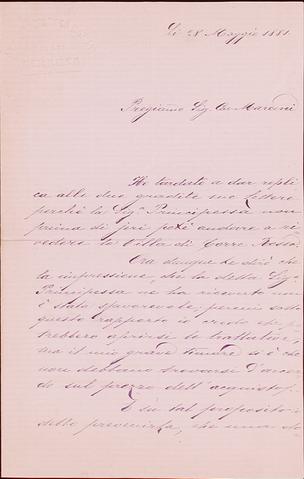 Li 28 Maggio 1881
Pregiatmo Sig. Marcucci
Ho tardato a dar repli
ca alle due gradite sue lettere
perchè la Sigra Principessa non
prima di jeri potè andare a ri
vedere la Valle di Torre Rossa.
Ora dunque le dirò che
la impressione, che la detta Sigra
Principessa ne ha ricevuto non
è stata sfavorevole, perciò sotto
questo rapporto io credo che po
trebbero aprirsi le trattative,
ma il mio grave timore si è che
non debbano trovarsi d'accor
do sul prezzo dell'acquisto.
E su tal proposito
debbo prevenirla, che una